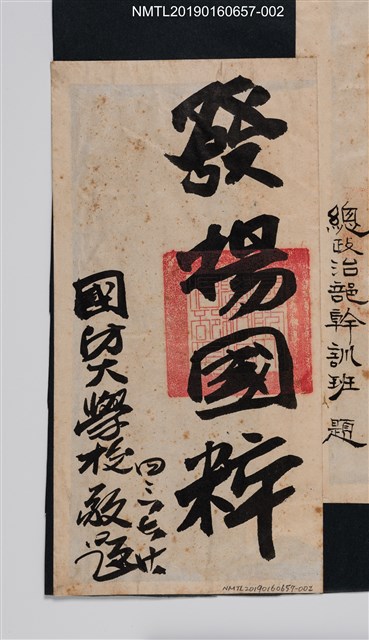 NMTL20190160657-002
總政治部幹訓班 題
發揚國粹
國防大學校敬題
四三、七、十
NMTL20190160657-002